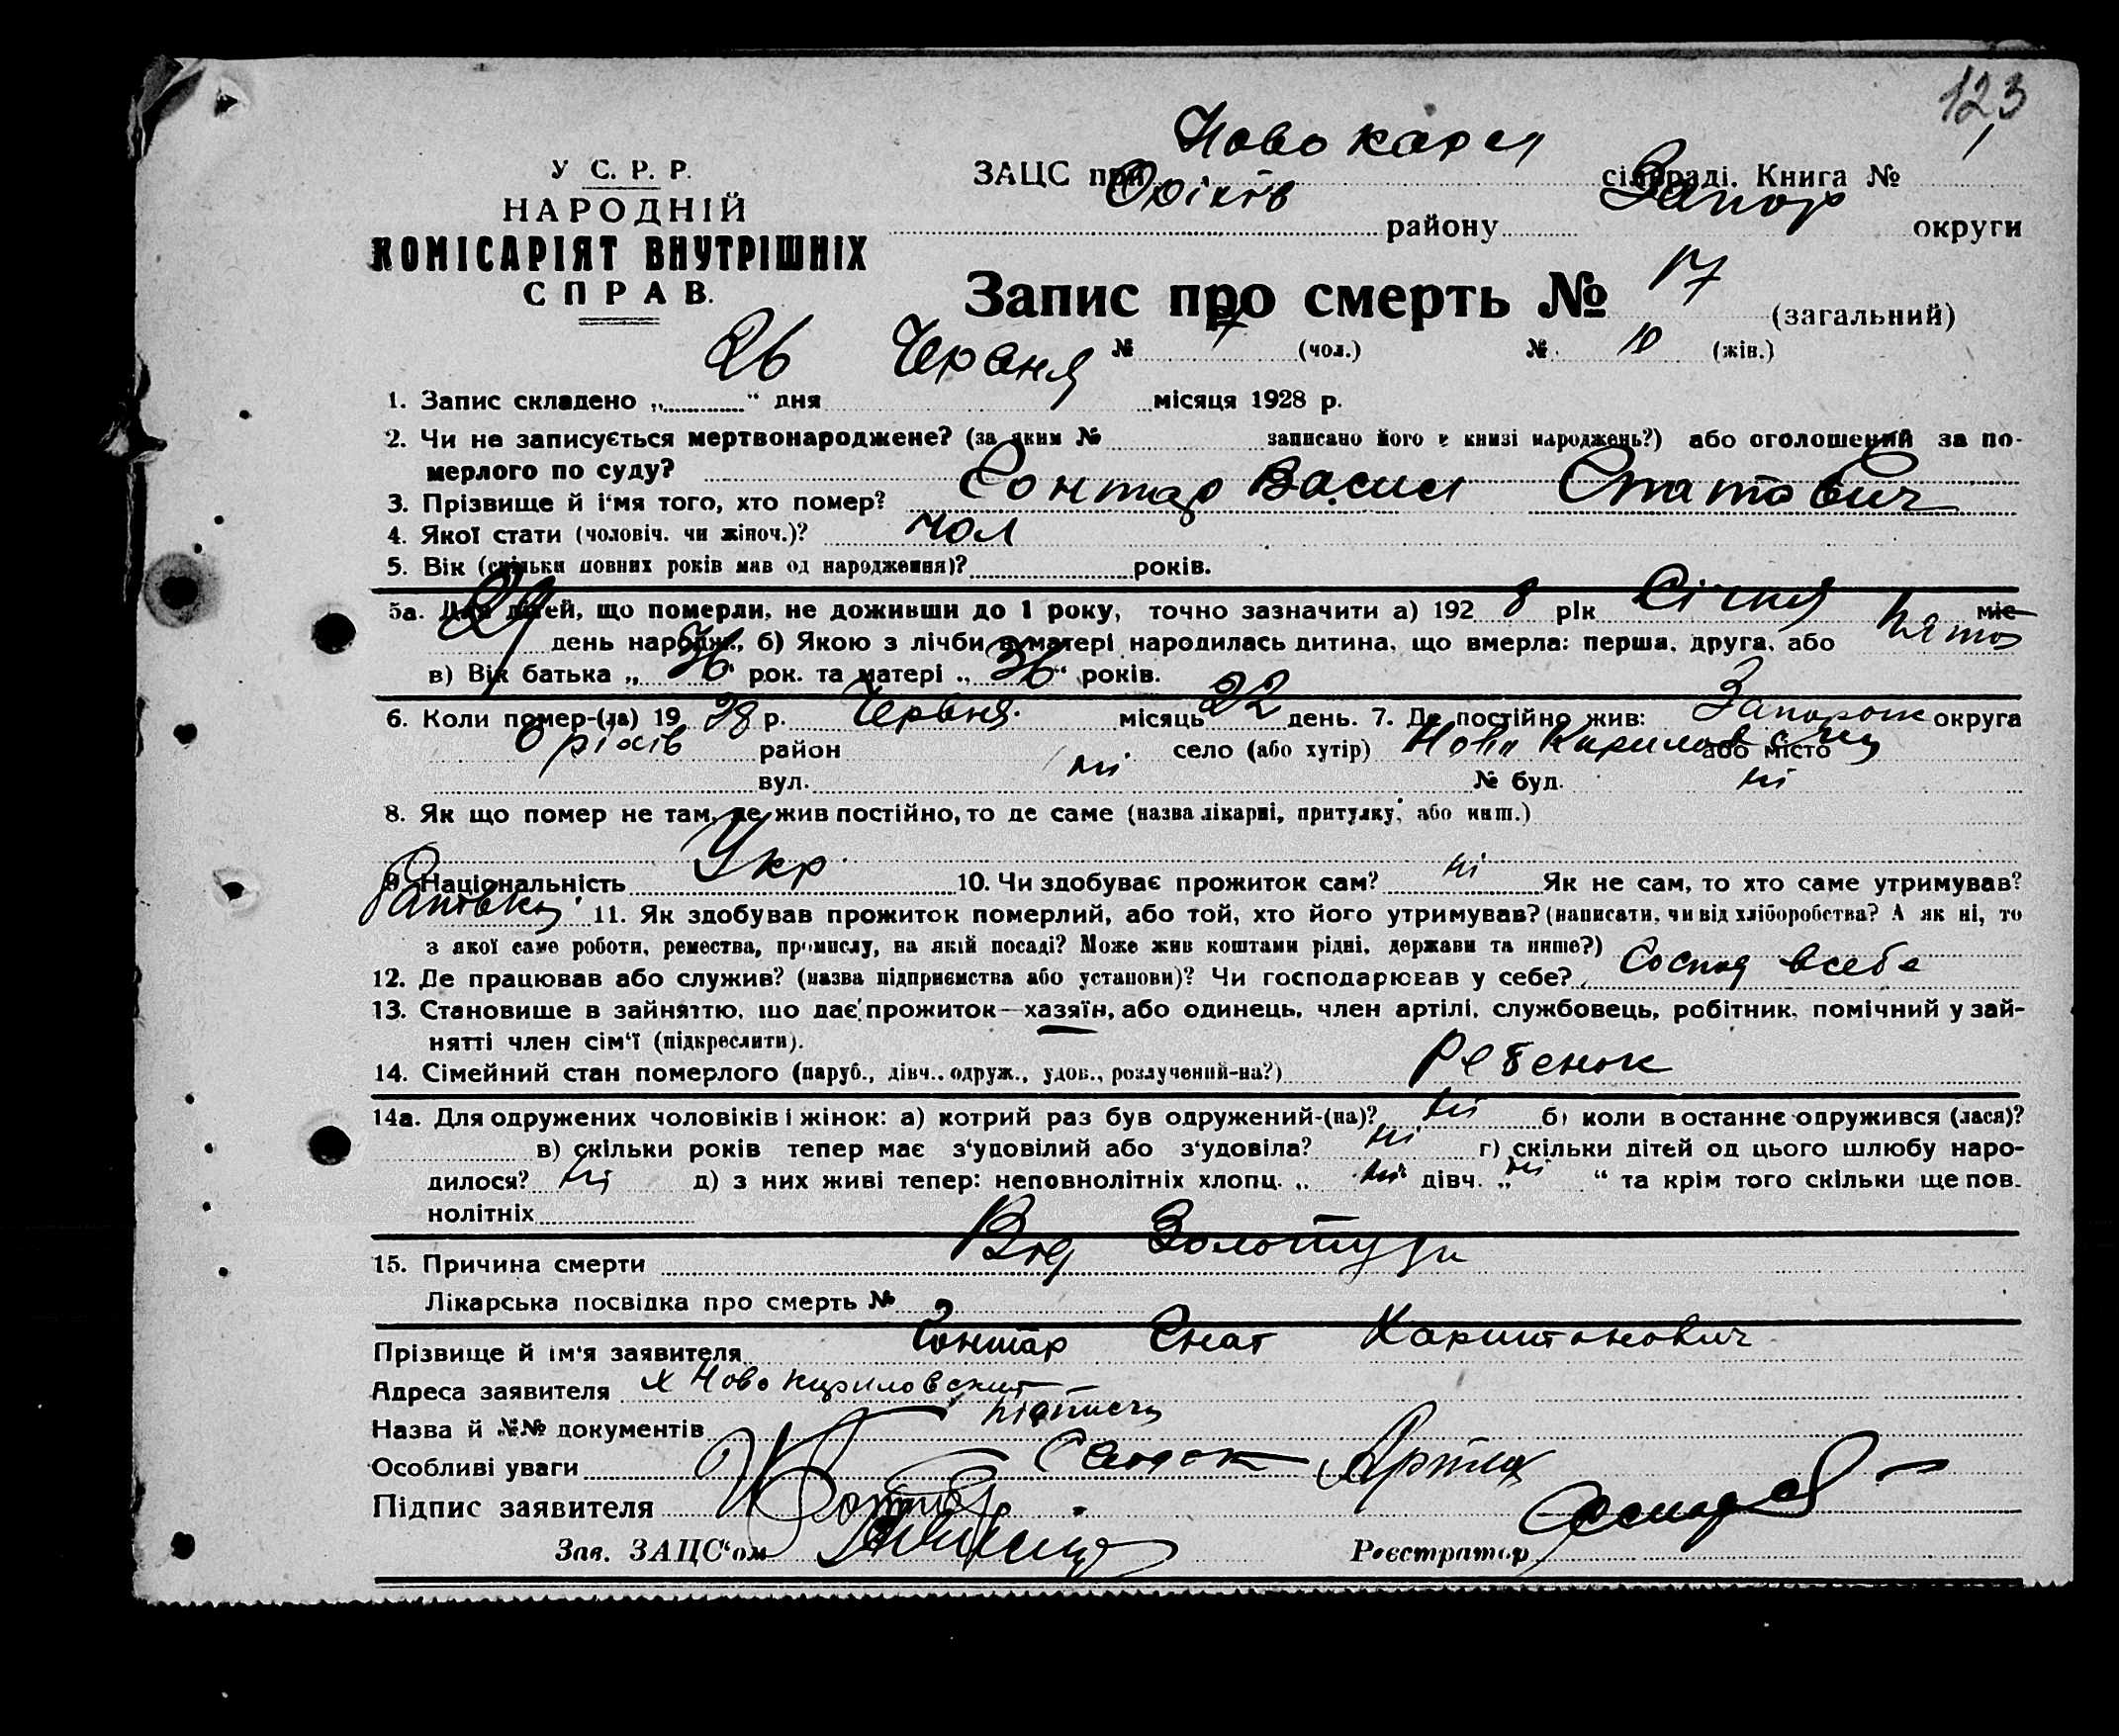 123
У С. Р. Р.
НАРОДНІЙ
КОМІСАРІЯТ ВНУТРІШНІХ
СПРАВ.
ЗАЦС при Ново карл сільраді. Книга №
Оріхів району Запор округи
Запис про смерть № 17 (загальний)
№ 7 (чол.) № 10 (жін.)
1. Запис складено „ 26 “ дня Червня місяця 1928 р.
2. Чи не записується мертвонароджене? (за яким № записано його в книзі народжень?) або оголошений за по-
мерлого по суду?
3. Прізвище й і‘мя того, хто помер? Гонтар Васил Єнатович
4. Якої стати (чоловіч. чи жіноч.)? чол
5. Вік (скільки повних років мав од народження)? років.
5а. Для дітей, що померли, не доживши до 1 року, точно зазначити а) 192 8 рік Січня міс
29 день народж., б) Якою з лічби в матері народилась дитина, що вмерла: перша, друга, або пята
в) Вік батька „ 36 “ рок. та матері „ 36 “ років.
6. Коли помер-(ла) 19 28 р. Червня місяць 22 день. 7. Де постійно жив: Запорож округа
Оріхів район село (або хутір) Ново Кириловский або місто
вул. ні № буд. ні
8. Як що помер не там, де жив постійно, то де саме (назва лікарні, притулку, або инш.)
9. Національність Укр 10. Чи здобуває прожиток сам? ні Як не сам, то хто саме утримував?
11. Як здобував прожиток померлий, або той, хто його утримував? (написати, чи від хліборобства? А як ні, то
з якої саме роботи, ремества, промислу, на якій посаді? Може жив коштами рідні, держави та инше?)
12. Де працював або служив? (назва підприємства або установи)? Чи господарював у себе? Господ всебе
13. Становише в зайняттю, що дає прожиток—хазяїн, або одинець, член артілі, службовець, робітник, помічний у зай-
нятті член сім‘ї (підкреслити).
14. Сімейний стан померлого (паруб., дівч., одруж., удов., розлучений-на?) ребенок
14а. Для одружених чоловіків і жінок: а) котрий раз був одружений-(на)? ні б) коли востаннє одружився (лася)?
в) скільки років тепер має з‘уповілий або з‘удовіла? ні г) скільки дітей од цього шлюбу наро-
дилося? ні д) з них живі тепер: неповнолітніх хлопц. „ ні дівч. „ ні “ та крім того скільки ще пов-
нолітніх
15. Причина смерти Вид Золотухи
Лікарська посвідка про смерть №
Прізвище й ім‘я заявителя Гонтар Єнат Харитонович
Адреса заявителя х Ново Кириловский
Назва й №№ документів
Особливі уваги
Підпис заявителя
Зав. ЗАЦС‘ом Реєстратор